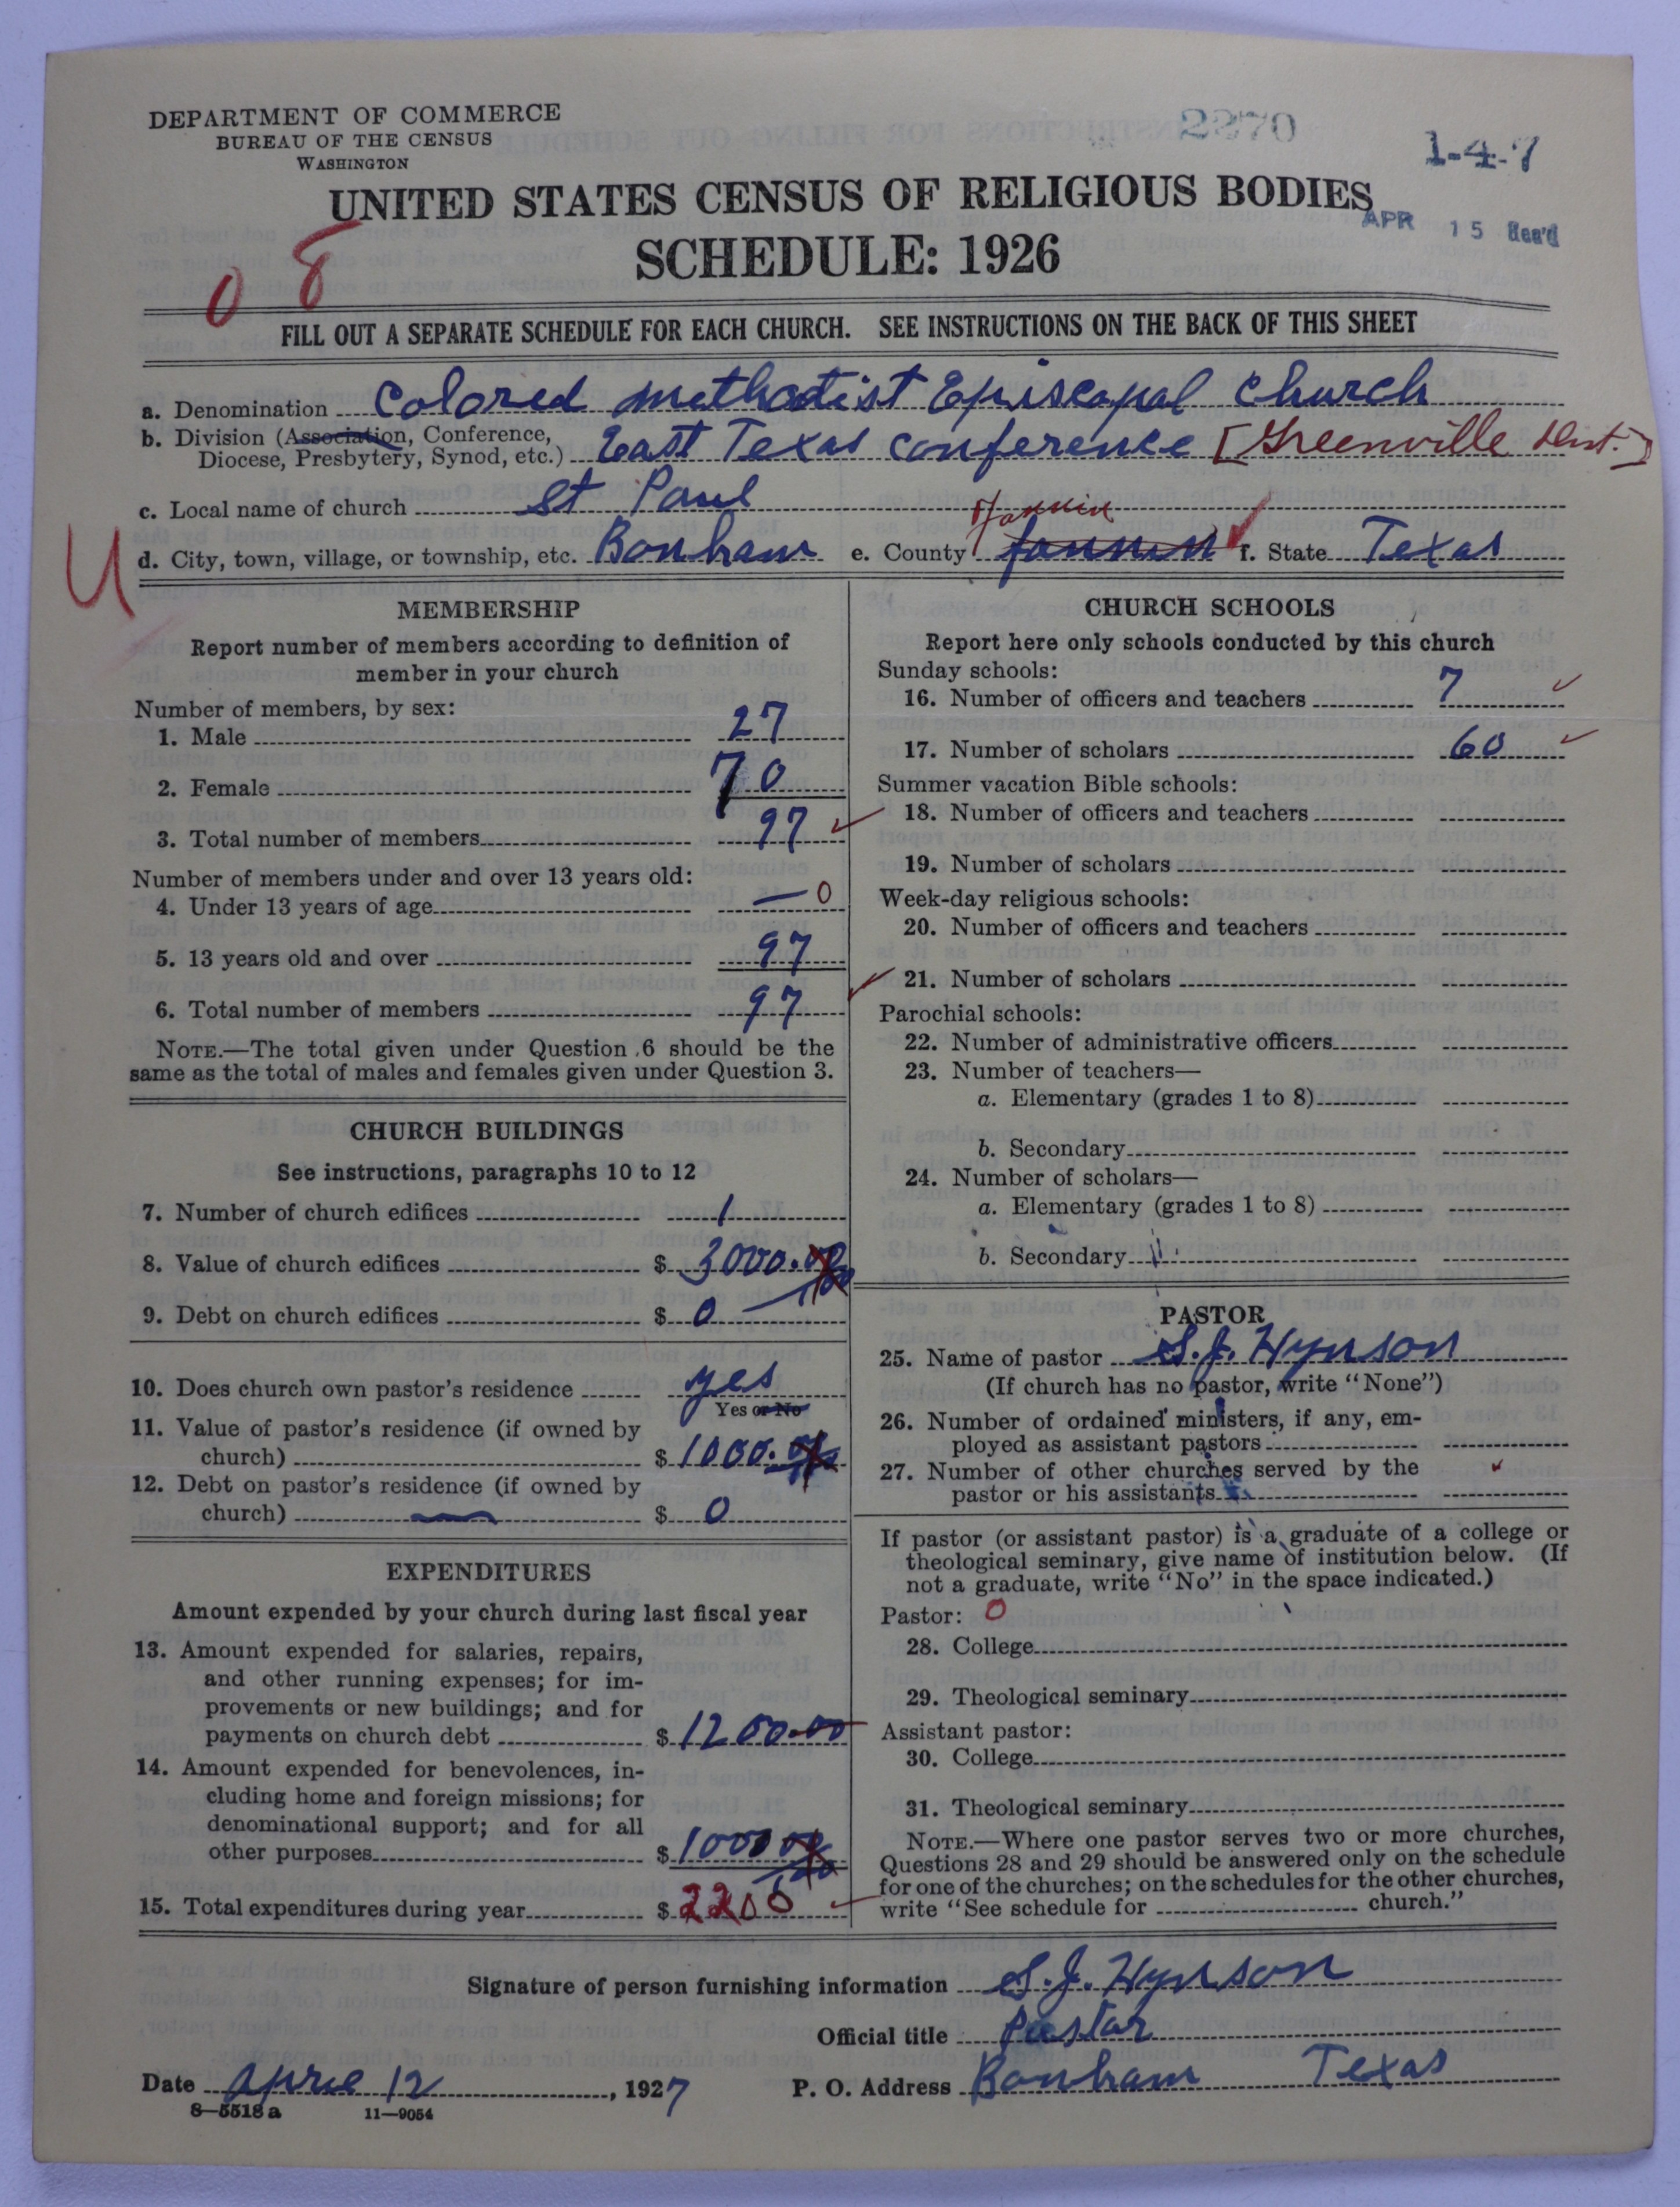 DEPARTMENT OF COMMERCE
BUREAU OF THE CENSUS
WASHINGTON
2270
1-4-7
UNITED STATES CENSUS OF RELIGIOUS BODIES
APR 15 Rec'd
SCHEDULE: 1926
0 8
FILL OUT A SEPARATE SCHEDULE FOR EACH CHURCH. SEE INSTRUCTIONS ON THE BACK OF THIS SHEET
a. Denomination Colored Methodist Episcopal Church
b. Division (Association, Conference, Diocese, Presbytery, Synod, etc.) East Texas Conference [Greenville Dist.]
c. Local name of church St Paul
U
d. City, town, village, or township, etc. Bonham e. County Fannin fannin f. State Texas
MEMBERSHIP
Report number of members according to definition of
member in your church
Number of members, by sex:
1. Male 27
2. Female 70
3. Total number of members 97
Number of members under and over 13 years old:
4. Under 13 years of age — 0
5. 13 years old and over 97
6. Total number of members 97
NOTE.—The total given under Question 6 should be the
same as the total of males and females given under Question 3.
CHURCH BUILDINGS
See instructions, paragraphs 10 to 12
7. Number of church edifices 1
8. Value of church edifices $ 3000.
9. Debt on church edifices $ 0
10. Does church own pastor's residence yes
Yes or No
11. Value of pastor's residence (if owned by
church) $ 1000.
12. Debt on pastor's residence (if owned by
church) $ 0
EXPENDITURES
Amount expended by your church during last fiscal year
13. Amount expended for salaries, repairs,
and other running expenses; for im-
provements or new buildings; and for
payments on church debt $ 1200.00
14. Amount expended for benevolences, in-
cluding home and foreign missions; for
denominational support; and for all
other purposes $ 1000
15. Total expenditures during year $ 2200
CHURCH SCHOOLS
Report here only schools conducted by this church
Sunday schools:
16. Number of officers and teachers 7
17. Number of scholars 60
Summer vacation Bible schools:
18. Number of officers and teachers
19. Number of scholars
Week-day religious schools:
20. Number of officers and teachers
21. Number of scholars
Parochial schools:
22. Number of administrative officers
23. Number of teachers—
a. Elementary (grades 1 to 8)
b. Secondary
24. Number of scholars—
a. Elementary (grades 1 to 8)
b. Secondary
PASTOR
25. Name of pastor S. J. Hynson
(If church has no pastor, write "None")
26. Number of ordained ministers, if any, em-
ployed as assistant pastors
27. Number of other churches served by the
pastor or his assistants
If pastor (or assistant pastor) is a graduate of a college or
theological seminary, give name of institution below. (If
not a graduate, write "No" in the space indicated.)
Pastor: 0
28. College
29. Theological seminary
Assistant pastor:
30. College
31. Theological seminary
NOTE.—Where one pastor serves two or more churches,
Questions 28 and 29 should be answered only on the schedule
for one of the churches; on the schedules for the other churches,
write "See schedule for church."
Signature of person furnishing information S. J. Hynson
Official title Pastor
Date April 12, 1927 P. O. Address Bonham Texas
8—5518 a 11—9054